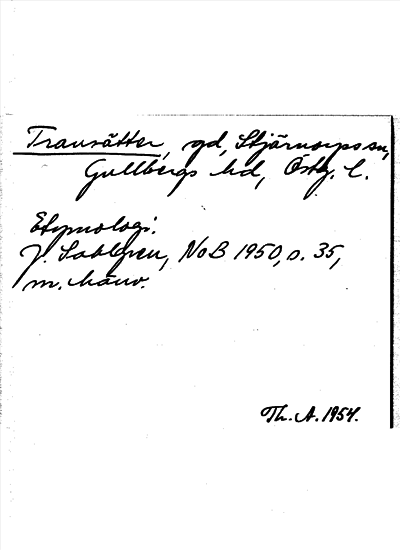 Transätter, gd, Stjärnorps sn,
Gullbergs hd, Östg. l.
Etymologi:
J. Sahlgren, NoB 1950, s. 35,
m. hänv.
Th. A. 1954.